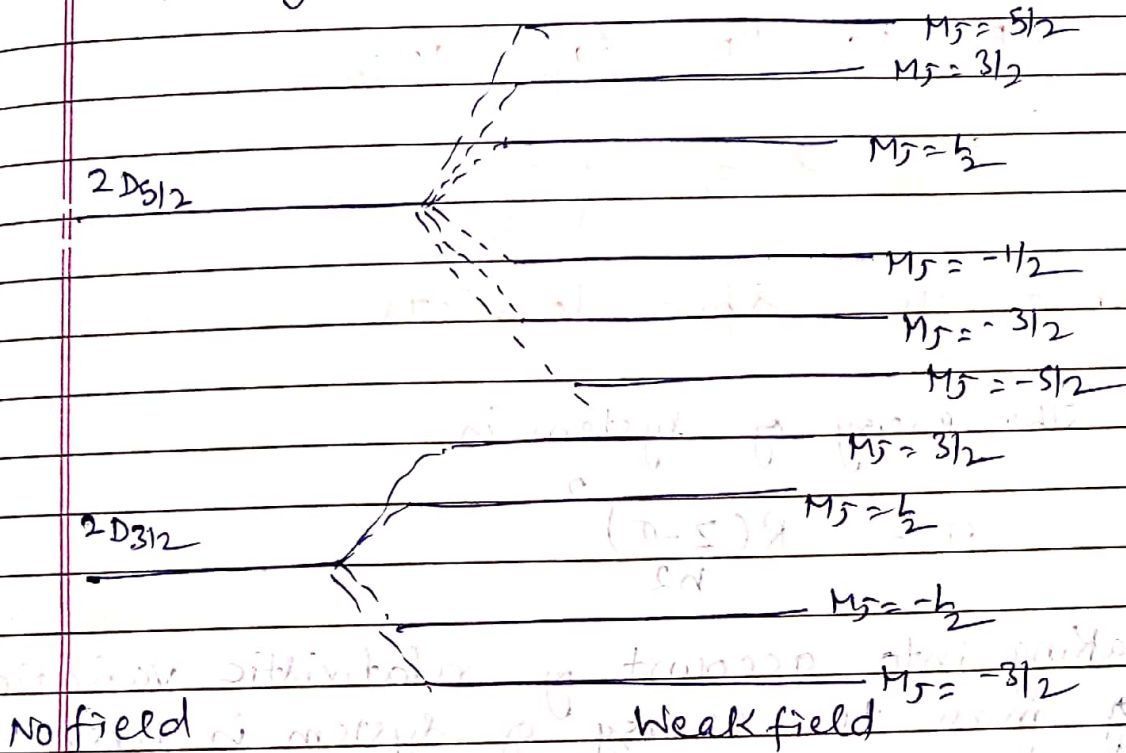 MJ = 5/2
MJ = 3/2
MJ = 1/2
2D5/2
MJ = -1/2
MJ = -3/2
MJ = -5/2
MJ = 3/2
MJ = 1/2
2D3/2
MJ = -1/2
MJ = -3/2
No field Weak field